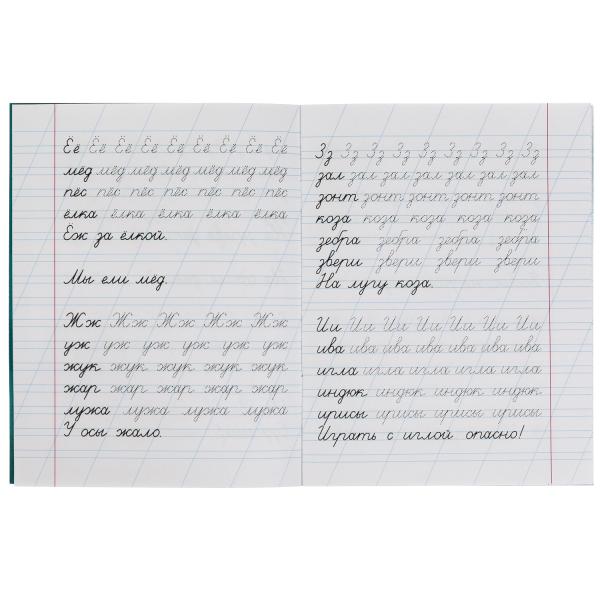 Ёё Ёё Ёё Ёё Ёё Ёё Ёё Ёё Ёё
мёд мёд мёд мёд мёд мёд мёд
пёс пёс пёс пёс пёс пёс
ёлка ёлка ёлка ёлка ёлка
Ёж за ёлкой.
Мы ели мёд.
Жж Жж Жж Жж Жж
уж уж уж уж уж уж
жук жук жук жук жук
жар жар жар жар жар
лужа лужа лужа лужа
У осы жало.
Зз Зз Зз Зз Зз Зз Зз Зз Зз
зал зал зал зал зал зал
зонт зонт зонт зонт зонт
коза коза коза коза коза
зебра зебра зебра зебра
звери звери звери звери
На лугу коза.
Ии Ии Ии Ии Ии Ии Ии
ива ива ива ива ива ива ива
игла игла игла игла игла
индюк индюк индюк индюк
ирисы ирисы ирисы ирисы
Играть с иглой опасно!